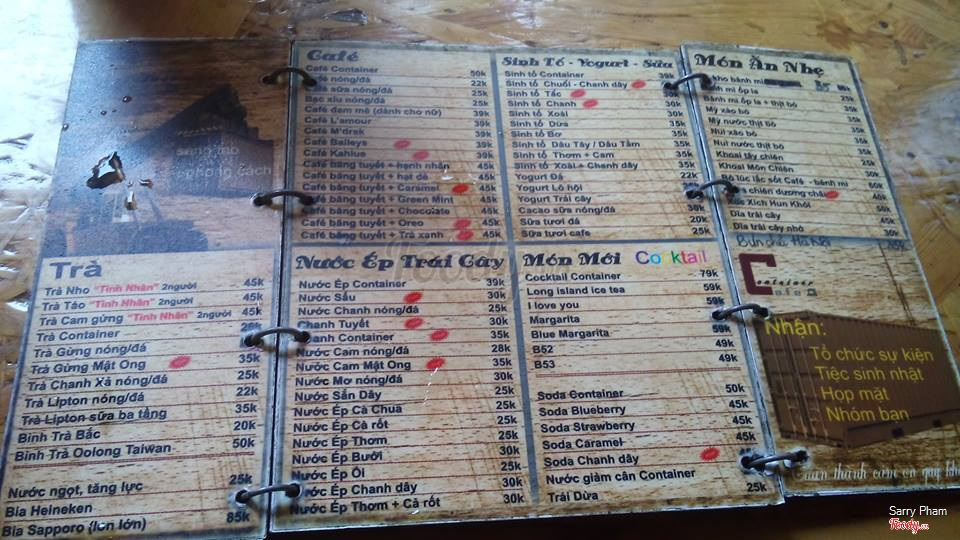 Café
Café Container 50k
nóng/đá 22k
sữa nóng/đá 25k
Bạc xỉu nóng/đá 25k
Café đam mê (dành cho nữ) 39k
Café L'amour 39k
Café M'drak 39k
Café Baileys 39k
Café Kahlua 39k
Café băng tuyết + hạnh nhân 45k
Café băng tuyết + hạt dẻ 45k
Café băng tuyết + Caramel 45k
Café băng tuyết + Green Mint 45k
Café băng tuyết + Chocolate 45k
Café băng tuyết + Oreo 45k
Café băng tuyết + Trà xanh 45k
Sinh Tố - Yogurt - Sữa
Sinh tố Container 39k
Sinh tố Chuối - Chanh dây
Sinh tố Tắc
Sinh tố Chanh
Sinh tố Xoài
Sinh tố Dừa 35k
Sinh tố Bơ 35k
Sinh tố Dâu Tây / Dâu Tằm 35k
Sinh tố Thơm + Cam 35k
Sinh tố Xoài + Chanh dây 35k
Yogurt Đá 22k
Yogurt Lô hội
Yogurt Trái cây
Cacao sữa nóng/đá 30k
Sữa tươi đá 20k
Sữa tươi cafe 25k
Món Ăn Nhẹ
kho bánh mì
mì ốp la 25k
Bánh mì ốp la + thịt bò
Mỳ xào bò 35k
Mỳ nước thịt bò 35k
Nui xào bò 35k
Nui nước thịt bò 35k
Khoai tây chiên
Khoai Môn Chiên
Bò lúc lắc sốt Café - bánh mì
chiên dương châu
Xúc Xích Hun Khói
Dĩa trái cây
Dĩa trái cây nhỏ 30k
Bún chả Hà Nội
Trà
Trà Nho "Tình Nhân" 2người 45k
Trà Táo "Tình Nhân" 2người 45k
Trà Cam gừng "Tình Nhân" 2người 45k
Trà Container
Trà Gừng nóng/đá
Trà Gừng Mật Ong 35k
Trà Chanh Xả nóng/đá 25k
Trà Lipton nóng/đá 22k
Trà Lipton sữa ba tầng 35k
Bình Trà Bắc 20k
Bình Trà Oolong Taiwan 50k
Nước ngọt, tăng lực 25k
Bia Heineken
Bia Sapporo (lon lớn) 85k
Nước Ép Trái Cây
Nước Ép Container 39k
Nước Sấu 30k
Nước Chanh nóng/đá 25k
Chanh Tuyết 30k
Chanh Container 35k
Nước Cam nóng/đá 28k
Nước Cam Mật Ong 35k
Nước Mơ nóng/đá 30k
Nước Sắn Dây 25k
Nước Ép Cà Chua 25k
Nước Ép Cà rốt 25k
Nước Ép Thơm 25k
Nước Ép Bưởi 30k
Nước Ép Ổi 25k
Nước Ép Chanh dây 30k
Nước Ép Thơm + Cà rốt 30k
Món Mới Cocktail
Cocktail Container 79k
Long island ice tea 59k
I love you 59k
Margarita
Blue Margarita 59k
B52 49k
B53 49k
Soda Container 50k
Soda Blueberry 45k
Soda Strawberry 45k
Soda Caramel 45k
Soda Chanh dây
Nước giảm cân Container
Trái Dừa 25k
Container
Nhận:
Tổ chức sự kiện
Tiệc sinh nhật
Họp mặt
Nhóm bạn
thành cảm ơn quý
Sarry Pham
Foody.vn